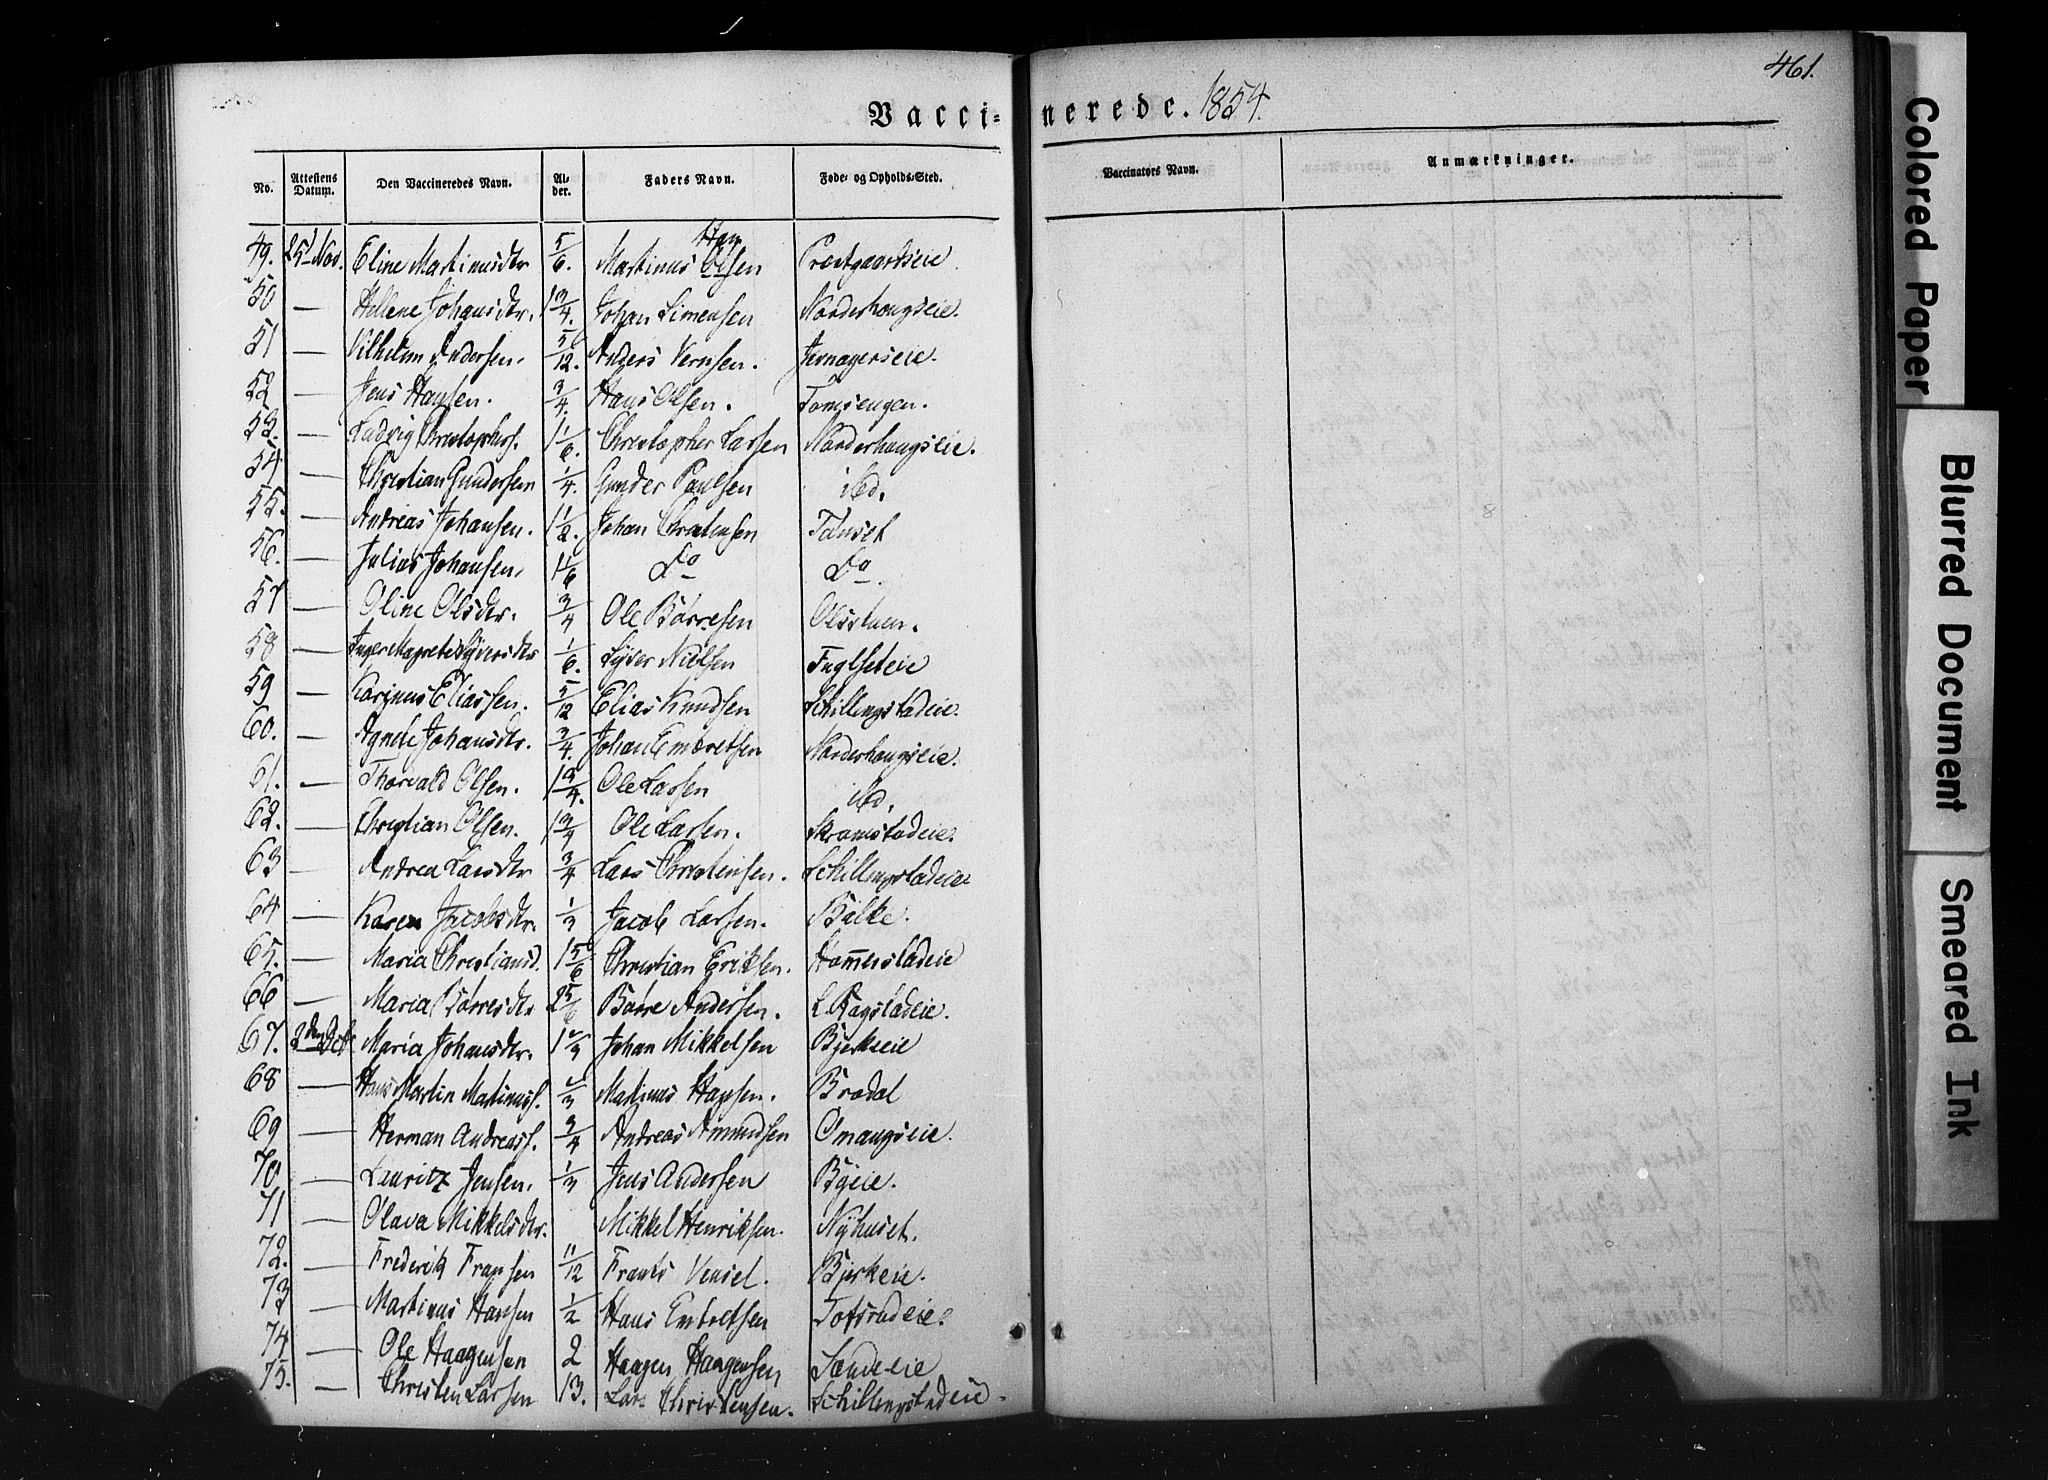 461.
Vaccinerede. 1854.
No. Attestens Datum. Den Vaccineredes Navn. Alder. Faders Navn. Føde- og Opholds-Sted. Vaccinators Navn. Anmærkninger.
49. 25 Nov. Eline Martinusdtr 5/6. Martinus Olsen Præstgaardseie
50 — Hellene Johansdtr. 1 3/4. Johan Simensen Norderhougseie.
51 — Vilhelm Andersen. 5/12. Anders Vernsen. Jevnagerseie.
52 — Jens Hansen. 3/4. Hans Olsen. Tomsengen.
53. — Ludvig Christophers. 1 1/6. Christopher Larsen Norderhougseie.
54 — Christian Gundersen 1/4. Gunder Paulsen ibd.
55. — Andreas Johansen. 1 1/2. Johan Christensen Tanset
56. — Julius Johansen. 1 1/6 Do Do.
57 — Oline Olsdtr. 3/4 Ole Börresen Olsstuen.
58 — Inger Magrete Syversdtr 1/6. Syver Nielsen Fuglseteie
59 — Karinus Eliassen. 5/12 Elias Knudsen Schillingstadeie.
60. — Agnete Johansdtr. 3/4. Johan Embretsen Norderhougseie.
61. — Thorvald Olsen. 1 3/4. Ole Larsen ibd.
62. — Christian Olsen. 1 3/4 Ole Larsen. Skramstadeie.
63 — Andrea Larsdtr 3/4 Lars Christensen. Schillingstadeie
64 — Karen Jacobsdtr. 1/3 Jacob Larsen. Balke.
65. — Maria Christiansd. 1 5/6 Christian Eriksen. Hommerstadeie
66 — Maria Börresdtr 2 5/6 Børre Andersen. L. Ragstadeie.
67. Maria Johansdtr. 1 2/3 Johan Mikkelsen Bjerkeeie
68 — Hans Martin Martinuss. 2/3 Martinus Hansen. Brodal
69 — Herman Andreass. 3/4 Andreas Amundsen Omangseie.
70. — Lauritz Jensen. 1/3 Jens Andersen Byeie.
71 — Olava Mikkelsdtr. Mikkel Henriksen. Nyhuset.
72. — Frederik Fransen 11/12 Frants Vensel. Bjerkeie.
73 — Martinus Hansen 1/2 Hans Embretsen Tofsrudeie.
74 — Ole Haagensen 2 Haagen Haagensen Sændeeie
75. — Christen Larsen 13. Lars Christensen. Schillingstadeie.
Colored Paper
Blurred Document
Smeared Ink